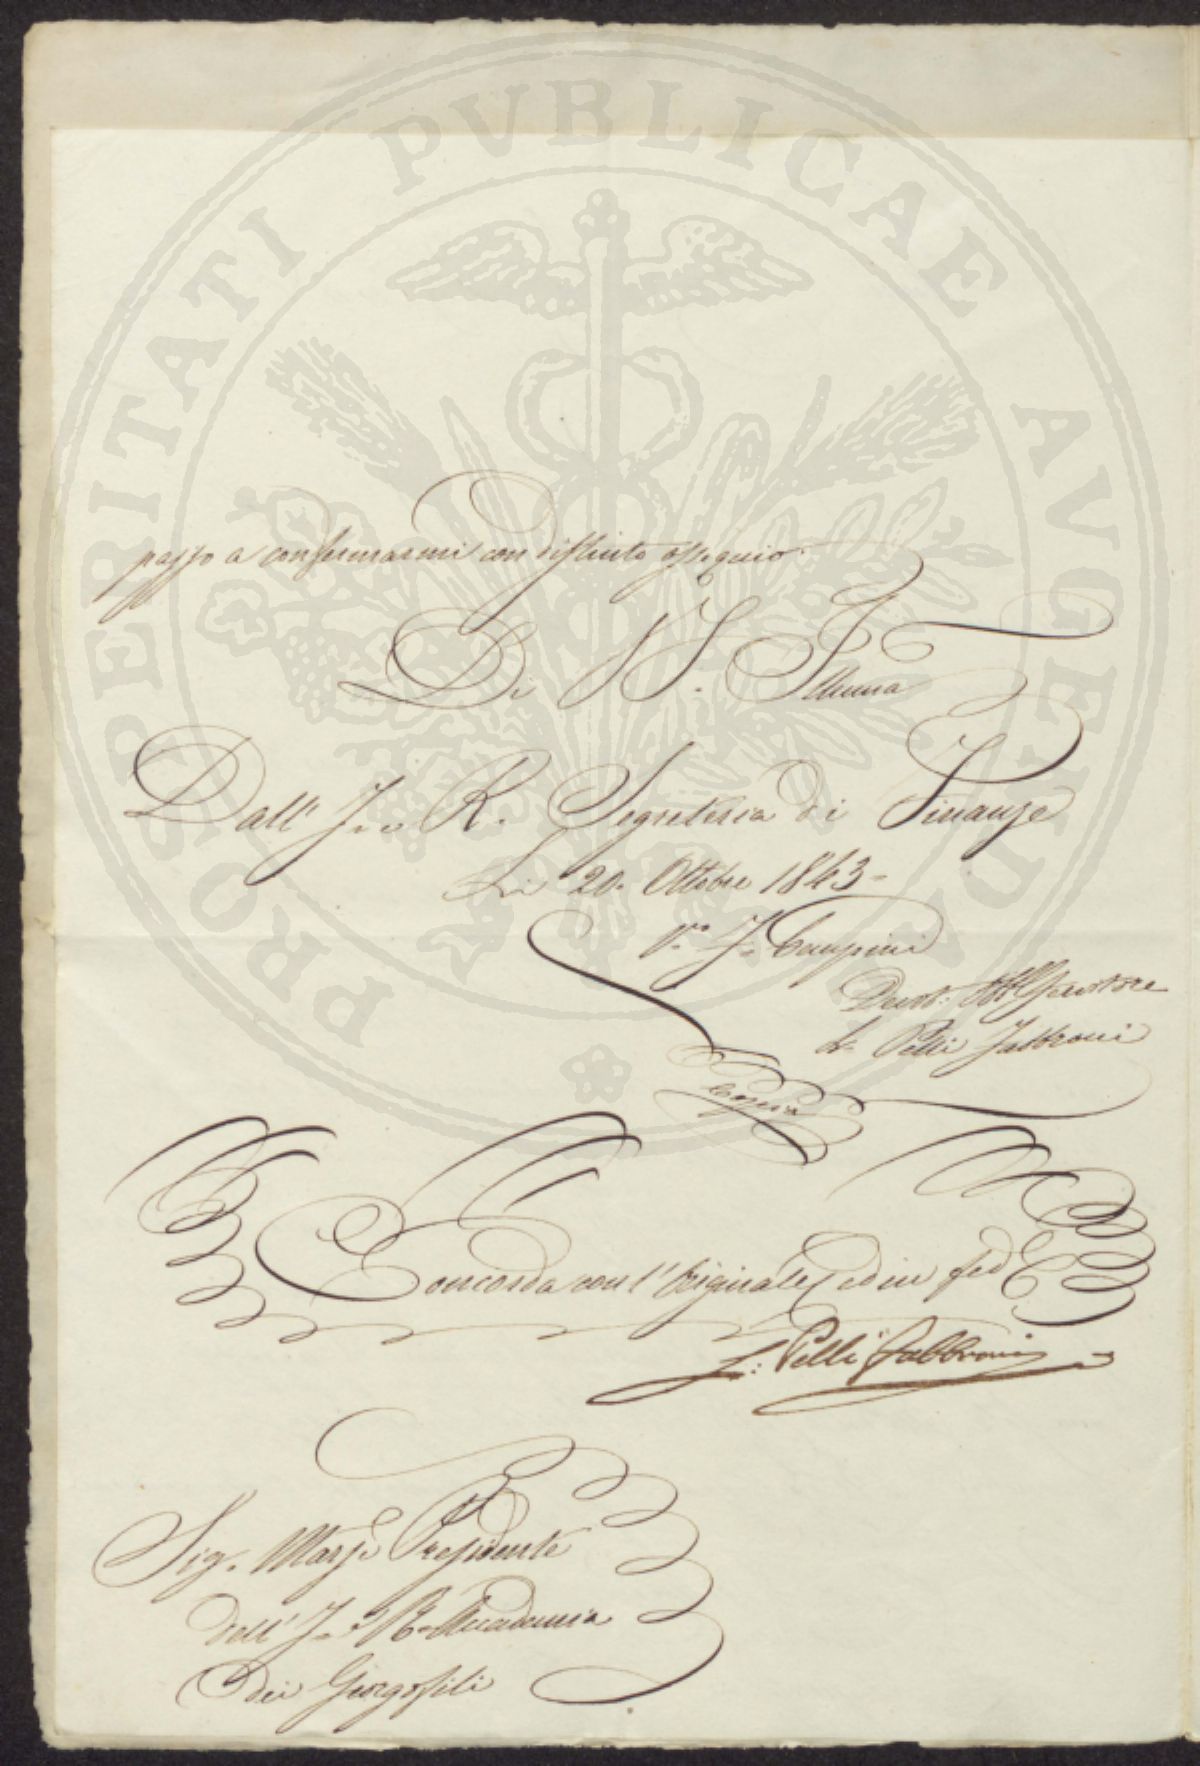 PROSPERITATI PUBLICAE AVGENDAE
passo a confermarmi con distinto ossequio.
Di V. S. Illma
Dall' I. e R. Segreteria di Finanze
Li 20. Ottobre 1843.
Devot.
L. Pelli Fabbroni
Copia
Concorda con l'Originale ed in fede
L: Pelli Fabbroni
Sig. March. Presidente
dell' I. e R. Accademia
dei Georgofili